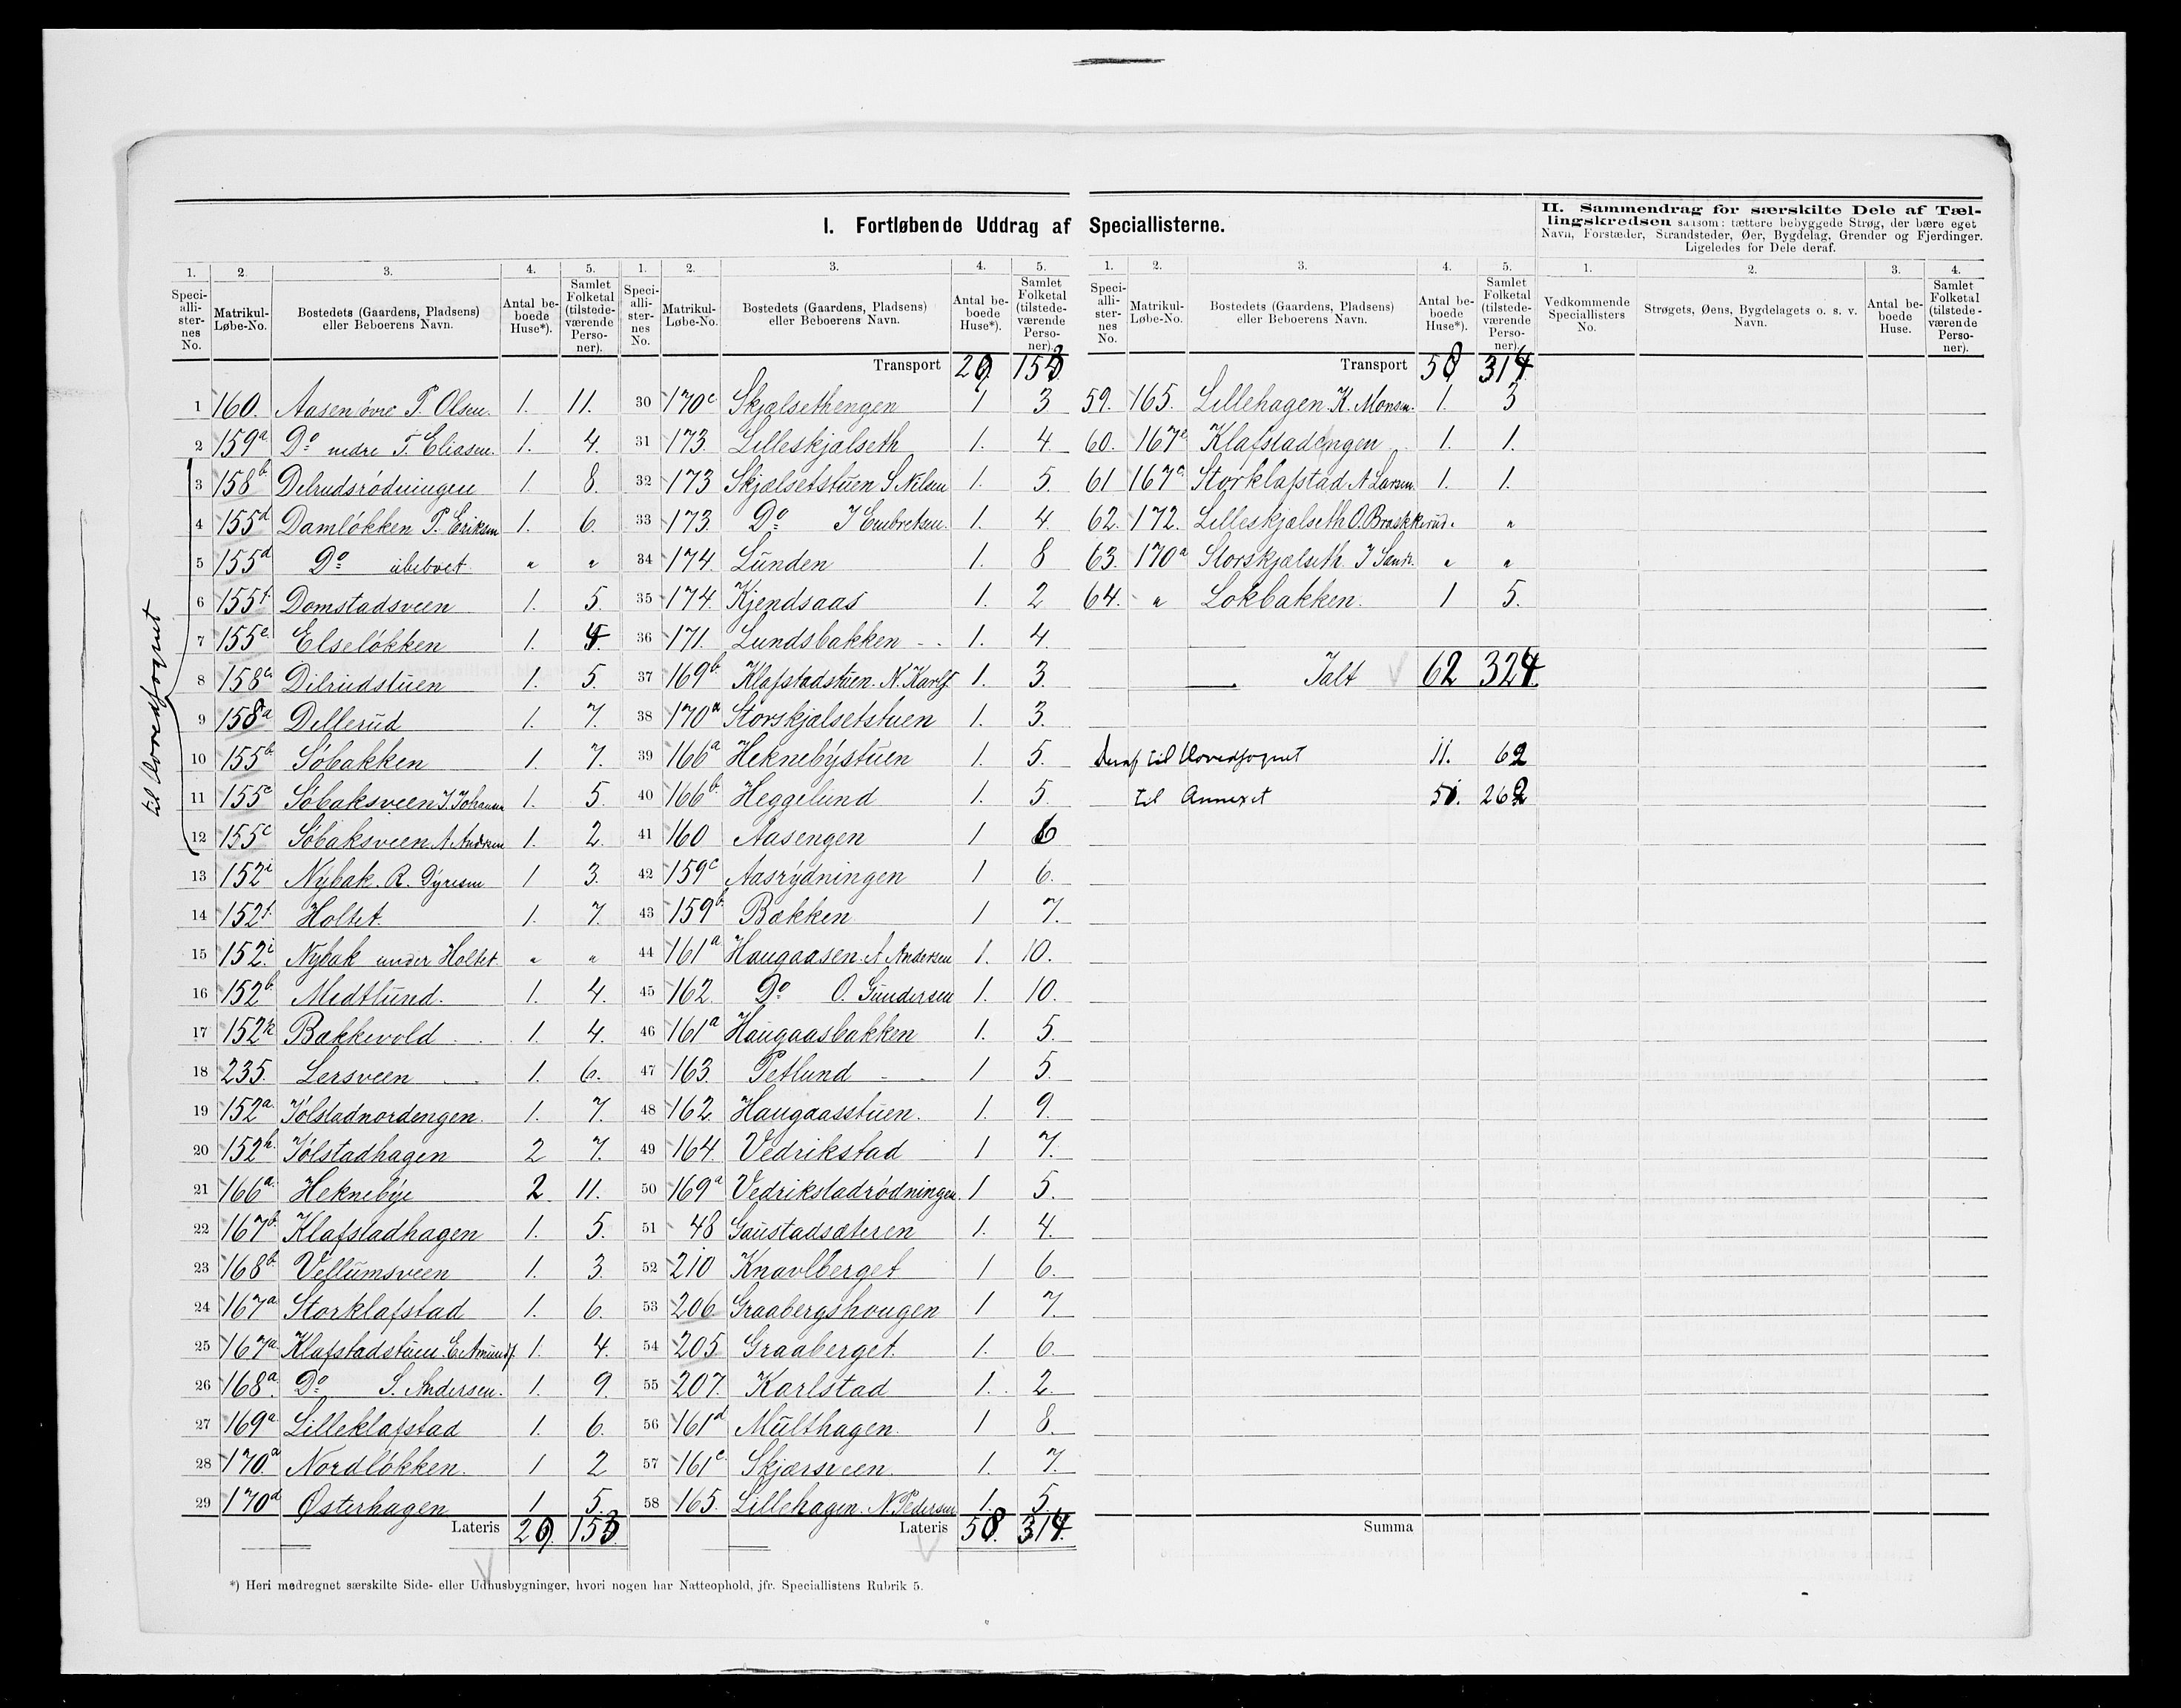 I. Fortløbende Uddrag af Speciallisterne.
II. Sammendrag for særskilte Dele af Tællingskredsen saasom: tættere bebyggede Strøg, der bære eget Navn, Forstæder, Strandsteder, Øer, Bygdelag, Grender og Fjerdinger. Ligeledes for Dele deraf.
1. 2. 3. 4. 5. 1. 2. 3. 4. 5. 1. 2. 3. 4. 5. 1. 2. 3. 4.
Speciallisternes No. Matrikul-Løbe-No. Bostedets (Gaardens, Pladsens) eller Beboerens Navn. Antal beboede Huse*). Samlet Folketal (tilstedeværende Personer).
Speciallisternes No. Matrikul-Løbe-No. Bostedets (Gaardens, Pladsens) eller Beboerens Navn. Antal beboede Huse*). Samlet Folketal (tilstedeværende Personer).
Speciallisternes No. Matrikul-Løbe-No. Bostedets (Gaardens, Pladsens) eller Beboerens Navn. Antal beboede Huse*). Samlet Folketal (tilstedeværende Personer).
Vedkommende Speciallisters No. Strøgets, Øens, Bygdelagets o. s. v. Navn. Antal beboede Huse. Samlet Folketal (tilstedeværende Personer).
til Hovedsognet
1 160. Aasen øvre P. Olsen. 1. 11.
2 159a Do nedre T. Eliasen. 1. 4.
3 158b. Delrudsrödningen 1. 8.
4 155d Damlökken P. Eriksen 1. 6.
5 155d Do ubeboet " "
6 155f. Domstadsveen 1. 5.
7 155e. Elselökken 1. 4.
8 158c. Dilrudstuen 1. 5.
9 158a Dillerud 1. 7.
10 155b. Söbakken 1. 7.
11 155c Söbaksveen J. Johansen 1. 5.
12 155c Söbaksveen A. Andersen 1. 2.
13 152i Nybak. R. Dyresen 1 3.
14 152f. Holtet. 1. 7.
15 152i. Nybak under Holtet. " "
16 152b. Medtlund. 1. 4.
17 152k Bakkevold 1. 4.
18 235. Lersveen 1. 6.
19 152a. Jölstadnordengen. 1. 7.
20 152h. Jölstadhagen 2 7.
21 166a. Heknebye 2. 11.
22 167b. Klafstadhagen 1. 5.
23 168b. Vellumsveen 1. 3.
24 167a Storklafstad 1. 6.
25 167a Klafstadstuen. E. Amunds. 1. 4.
26 168a. Do S. Andersen. 1. 9.
27 169a Lilleklafstad 1. 6.
28 170a Nordlökken. 1 2
29 170d Østerhagen 1 5.
Lateris 29. 153
Transport 29. 153
30 170c Skjælsethengen 1 3
31 173. Lilleskjalseth 1. 4
32 173 Skjælsetstuen S. Nilsen 1. 5.
33 173. Do J Embretsen. 1. 4.
34 174 Lunden 1. 8
35 174. Kjendsaas 1. 2
36 171. Lundsbakken 1. 4.
37 169b. Klafstadstuen. N. Karls. 1. 3.
38 170a Storskjalsetstuen 1. 3.
39 166a Heknebystuen 1. 5.
40 166b. Heggelund 1. 5
41 160 Aasengen 1 6
42 159c Aasrydningen 1 6.
43 159b. Bækken 1 7.
44 161a Haugaasen. A Andersen 1. 10.
45 162. Do O. Gundersen 1. 10.
46 161a Haugaasbakken 1. 5.
47 163. Petlund 1 5.
48 162. Haugaasstuen. 1. 9.
49 164. Vedrikstad 1 7.
50 169a Vedrikstadrödningen. 1 5.
51 48 Gaustadsæteren 1. 4.
52 210 Knavlberget 1 6.
53 206 Graabergshougen 1 7.
54 205 Graaberget. 1. 6.
55 207. Karlstad 1. 2.
56 161d Multhagen. 1 8.
57 161c. Skjærsveen. 1. 7.
58 165. Lillehagen. N. Pedersen 1. 5.
Lateris 58. 314.
Transport 58 314
59. 165. Lillehagen. K. Monsen. 1. 3
60. Klafstadengen 1. 1.
61 167c. Storklafstad A Larsen. 1. 1.
62. 172. Lilleskjalseth O. Braskkerud. "
63. 170a Storskjælseth. " "
64. " Lokbakken. 1 5.
Ialt 62 324.
deraf til Hovedsognet 11. 62
til Annexet 51. 262
Summa
*) Heri medregnet særskilte Side- eller Udhusbygninger, hvori nogen har Natteophold, jfr. Speciallistens Rubrik 5.